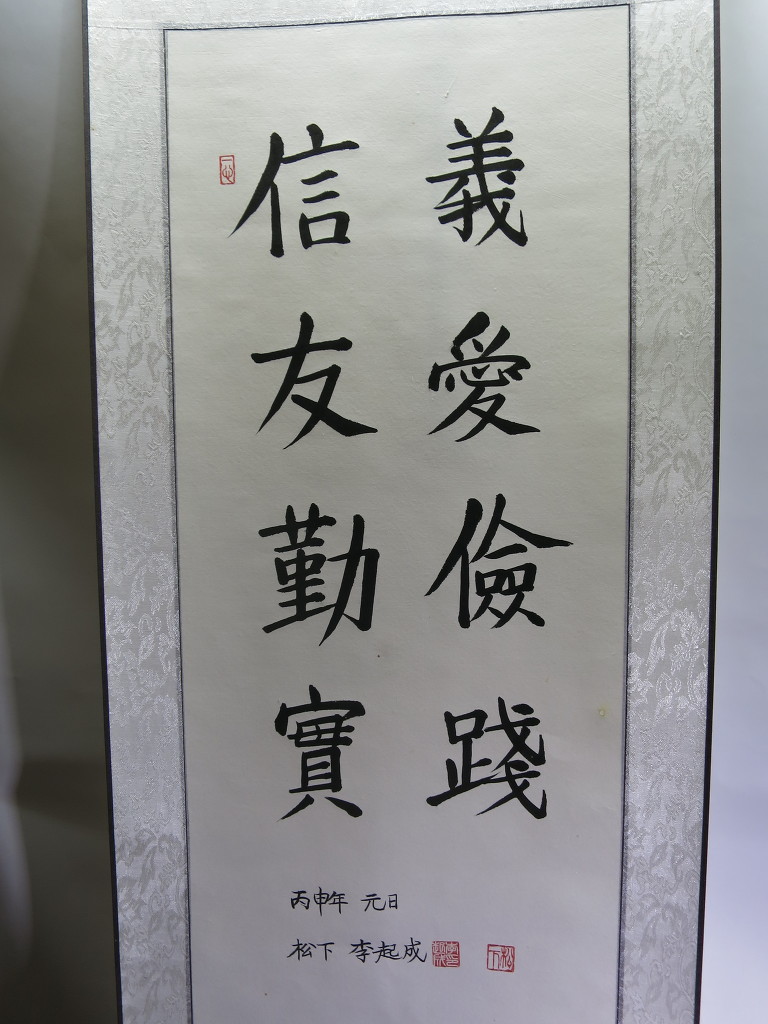 信義
友愛
勤儉
實踐
丙申年 元日
松下 李起成
松下